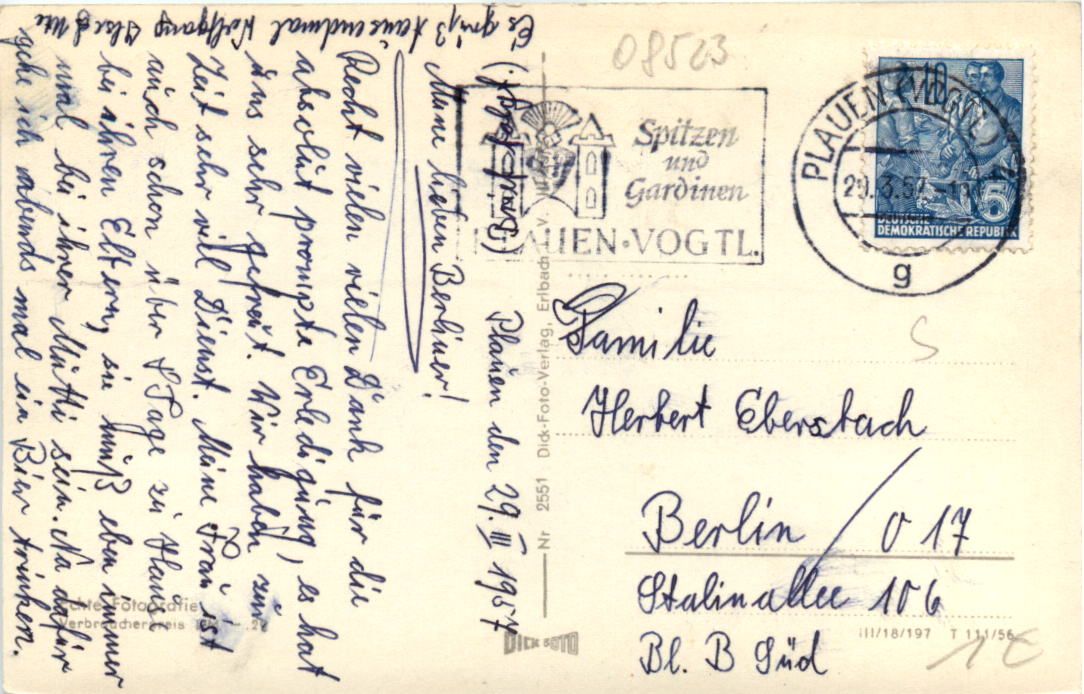 Plauen den 29. III 1957
Meine lieben Berliner!
Recht vielen vielen Dank für die
absolut prompte Erledigung, es hat
uns sehr gefreut. Wir haben zur
Zeit sehr viel Dienst. Meine Frau ist
auch schon über 8 Tage zu Hause
bei ihren Eltern, sie muß eben immer
mal bei ihrer Mutti sein. Na dafür
gehe ich abends mal ein Bier trinken.
Es grüßt tausendmal Wolfgang Ilse u Ute
Echte Fotografie
Verbraucherpreis
Nr 2551 Dick-Foto-Verlag, Erlbach i. V.
DICK FOTO
08523
Spitzen
und
Gardinen
PLAUEN·VOGTL.
PLAUEN (VOGTL) 1
29.3.57
g
10
5
DEUTSCHE
DEMOKRATISCHE REPUBLIK
S
Familie
Herbert Eberstach
Berlin / O 17
Stalinallee 106
Bl. B Süd
III/18/197 T 111/56
1€